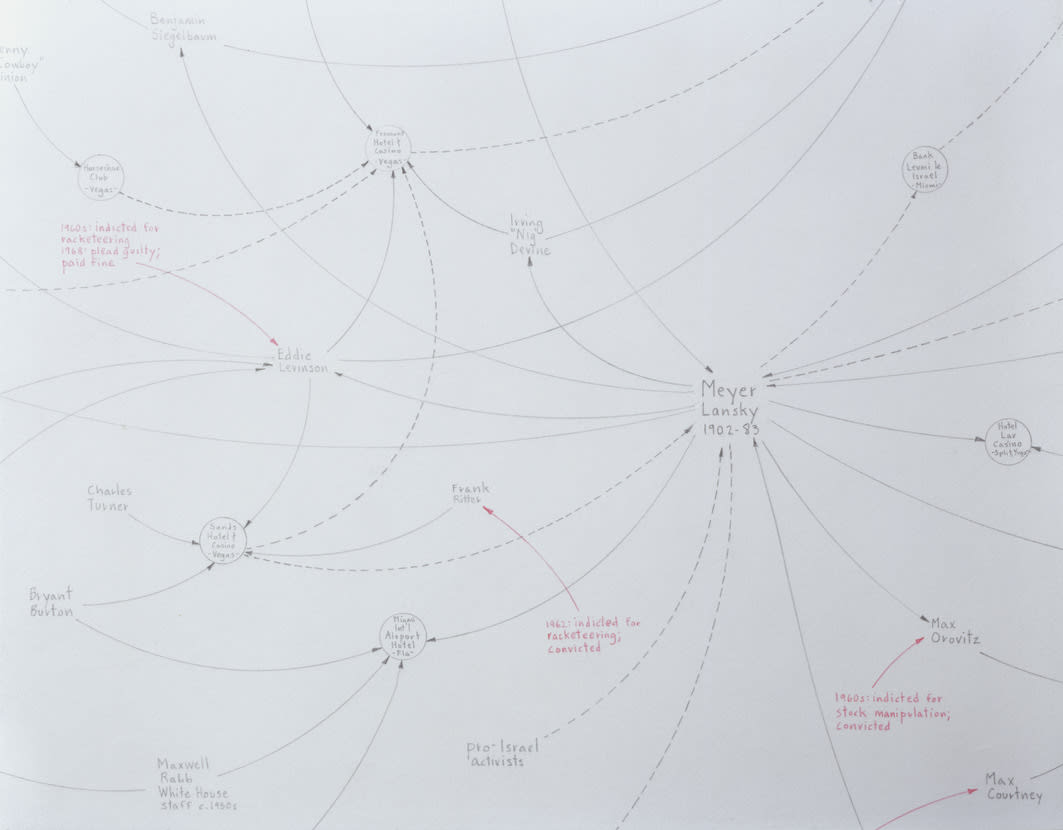 Benjamin
Siegelbaum
enny
owboy"
inion
Fremont
Hotel &
Casino
-Vegas-
Horseshoe
Club
-Vegas-
Bank
Leumi le
Israel
-Miami-
1960s: indicted for
racketeering
1968: plead guilty;
paid fine
Irving
"Nig"
Devine
Eddie
Levinson
Meyer
Lansky
1902-83
Hotel
Lav
Casino
Charles
Turner
Frank
Ritter
Sands
Hotel &
Casino
-Vegas-
Bryant
Burton
Miami
Int'l
Airport
Hotel
-Fla-
1962: indicted for
racketeering;
convicted
Max
Orovitz
1960s: indicted for
stock manipulation;
convicted
pro-Israel
activists
Maxwell
Rabb
White House
staff c.1950s
Max
Courtney